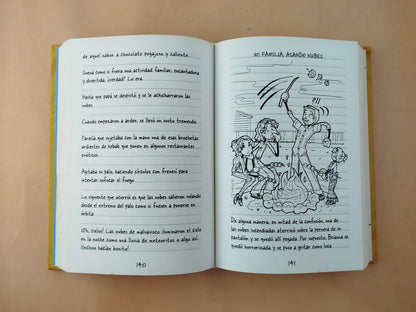 de aquel sabor a chocolate pegajoso y caliente.
Suena como si fuera una actividad familiar, encantadora
y divertida, ¿verdad? Lo era.
Hasta que papá se despistó y se le achicharraron las
nubes.
Cuando empezaron a arder, se llevó un susto tremendo.
Parecía que sujetaba con la mano una de esas brochetas
ardientes de kebab que ponen en algunos restaurantes
exóticos.
Agitaba su palo, haciendo círculos con frenesí para
intentar sofocar el fuego.
Lo siguiente que ocurrió es que las nubes salieron volando
desde el extremo del palo como si fuesen a ponerse en
órbita.
¡Oh, cielos! Las nubes de malvavisco iluminaron el cielo
en la noche como una lluvia de meteoritos o algo así...
¡Incluso hacían bonito!
190
MI FAMILIA, ASANDO NUBES
?!!
De alguna manera, en mitad de la confusión, una de
las nubes incendiadas aterrizó sobre la pernera de su
pantalón y se quedó allí pegada. Por supuesto, Brianna
se quedó horrorizada y se puso a gritar como loca.
191